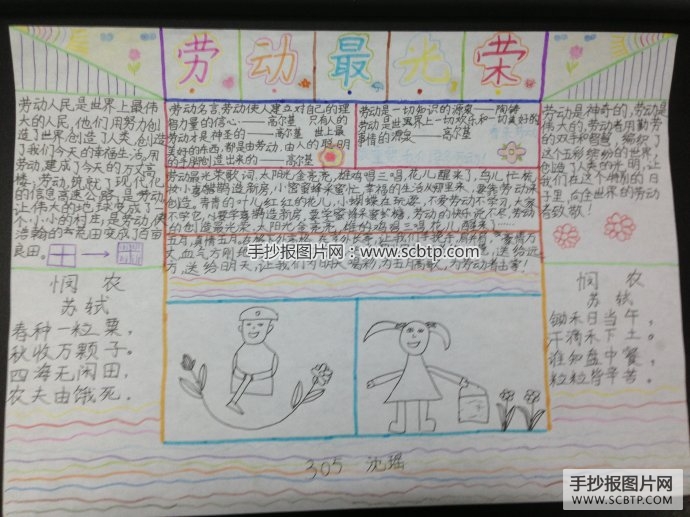 劳动最光荣
劳动人民是世界上最伟
大的人民,他们用努力创
造了世界,创造了人类,创造
了我们今天的幸福生活,用
劳动,建成了今天的万高
楼,劳动,筑就了现代化
的信息高速公路,是劳动,
让伟大的地球变成了一
个小小的村庄,是劳动,使
浩瀚的
荒田变成了百亩
良田。
劳动名言劳动使人建立对自己的理
智力量的信心——高尔基 只有人的
劳动才是神圣的——高尔基 世上最
美好的东西,都是由劳动,由人的聪明
的手所创造出来的——高尔基
劳动是一切知识的源泉——陶铸
劳动是世界上一切欢乐和一切美好的
事情的源泉——高尔基
劳动最光荣歌词,太阳光金亮亮,雄鸡鸣三唱,花儿醒来了,鸟儿忙梳
妆小喜鹊造新房,小蜜蜂采蜜忙,幸福的生活从哪里来,要靠劳动来
创造。青青的叶儿红红的花儿,小蝴蝶在玩耍,不爱劳动不学习,大家
不学它,要学喜鹊造新房,要学蜜蜂采蜜糖,劳动的快乐说不尽,劳动
的创造最光荣。太阳光金亮亮,雄鸡鸣三唱,花儿醒来了……
方,送给明天,让我们为明天喝彩,为五月高歌,为劳动者
劳动是神奇的,劳动是
伟大的,劳动者用勤劳
的双手和智慧,编织了
这个五彩缤纷的世界,
创造了人类的文明,让
我们在这个特别的日
子里,向全世界的劳动
者致敬!
悯农
苏轼
春种一粒粟,
秋收万颗子。
四海无闲田,
农夫由饿死。
悯农
苏轼
锄禾日当午,
汗滴禾下土。
谁知盘中餐,
粒粒皆辛苦。
305 沈瑶
手抄报图片网:www.scbtp.com
手抄报图片网
WWW.SCBTP.COM